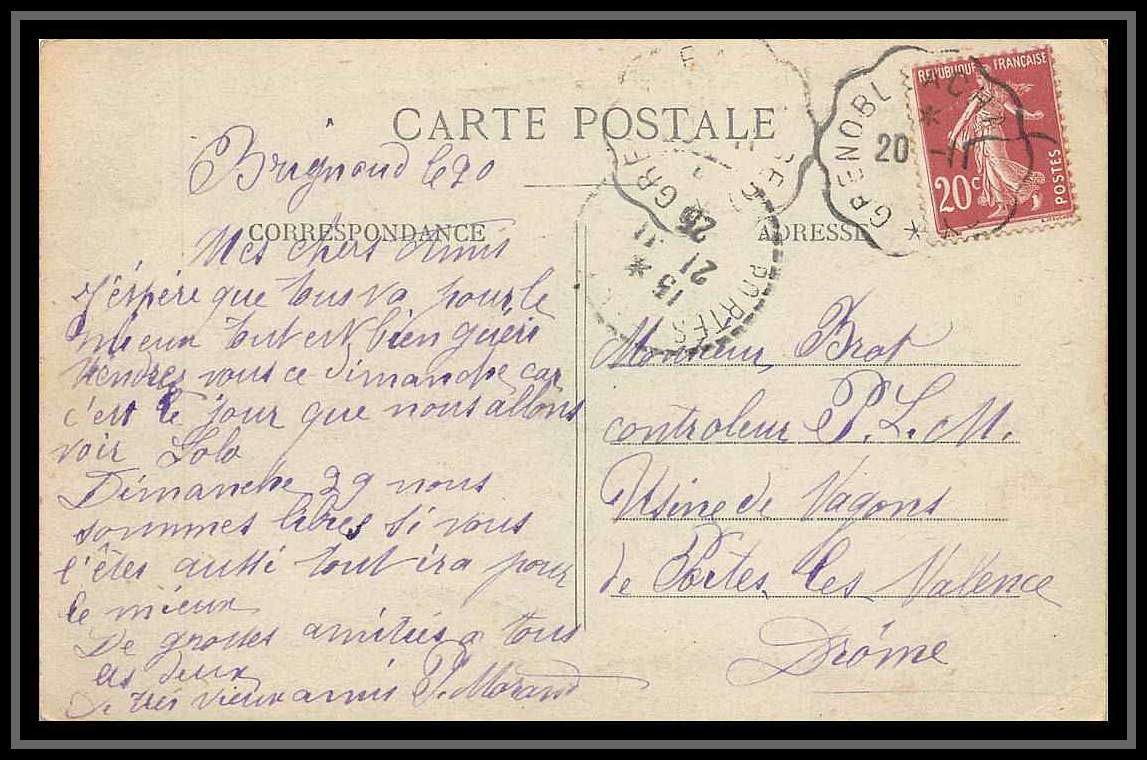 CARTE POSTALE
Brignoud le 20
CORRESPONDANCE
Mes chers amis
J'éspère que tous va pour le
mieux tout est bien guéri
Rendrez vous ce dimanche car
c'est le jour que nous allons
voir Lolo
Dimanche 29 nous
sommes libres si vous
l'êtes aussi tout ira pour
le mieux
De grosses amitiés a tous
les deux
vieux amis P. Morand
ADRESSE
Monsieur Brat
controleur P. L. M.
Usine de Vagons
de Portes les Valence
Drôme
REPUBLIQUE FRANÇAISE
20c
POSTES
GRENOBL
20 -11
GRE
PORTES
15 *
21 11
25